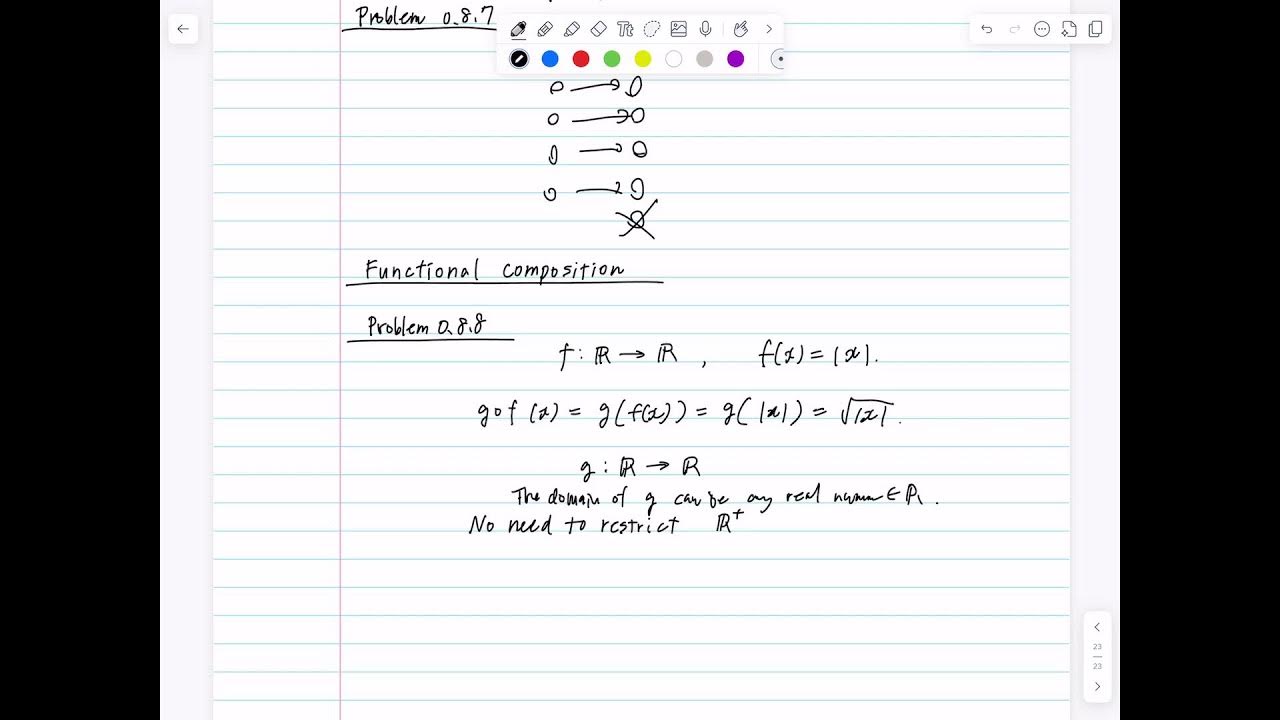 Problem 0.8.7
Tt
Functional composition
Problem 0.8.8
f : ℝ → ℝ , f(x) = |x|.
g∘f (x) = g(f(x)) = g(|x|) = √|x|.
g : ℝ → ℝ
The domain of g can be any real ∈ ℝ.
No need to restrict ℝ⁺
23
23